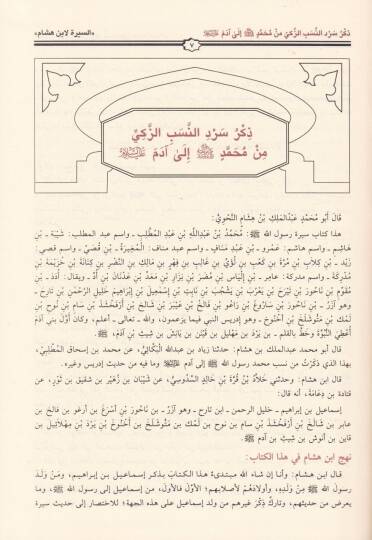 ذِكْرُ سَرْدِ النَّسَبِ الزَّكِيِّ مِنْ مُحَمَّدٍ ﷺ إِلَى آدَمَ عَلَيْهِ السَّلَام
«السيرة لابن هشام»
٧
ذِكْرُ سَرْدِ النَّسَبِ الزَّكِيِّ
مِنْ مُحَمَّدٍ ﷺ إِلَىٰ آدَمَ عَلَيْهِ السَّلَام
قَالَ أَبُو مُحَمَّدٍ عَبْدُالمَلِكِ بْنُ هِشَامٍ النَّحْوِيُّ:
هذا كتاب سيرة رسول الله ﷺ: مُحَمَّدُ بْنُ عَبْدِاللَّهِ بْنِ عَبْدِ المُطَّلِبِ - واسم عبد المطلب: شَيْبَة - بْنِ
هَاشِمٍ - واسم هاشم: عَمْرو - بْنِ عَبْدِ مَنَافٍ - واسم عبد مناف: الْمُغِيرَةُ - بْنِ قُصَيٍّ - واسم قصي:
زَيْد - بْنِ كِلَابِ بْنِ مُرَّةَ بْنِ كَعْبِ بْنِ لُؤَيِّ بْنِ غَالِبِ بْنِ فِهْرِ بْنِ مَالِكِ بْنِ النَّضْرِ بْنِ كِنَانَةَ بْنِ خُزَيْمَةَ بْنِ
مُدْرِكَةَ - واسم مدركة: عامر - بْنِ إِلْيَاسَ بْنِ مُضَرَ بْنِ نِزَارِ بْنِ مَعَدِّ بْنِ عَدْنَانَ بْنِ أُدٍّ - ويقال: أُدَدَ - بْنِ
مُقَوِّمِ بْنِ نَاحُورَ بْنِ تَيْرَحَ بْنِ يَعْرُبَ بْنِ يَشْجُبَ بْنِ نَابِتِ بْنِ إِسْمَعِيلَ بْنِ إِبْرَاهِيمَ خَلِيلِ الرَّحْمَنِ بْنِ تَارِحَ -
وهو آزَرُ - بْنِ نَاحُورَ بْنِ سَارُوغَ بْنِ رَاعُو بْنِ فَالَخَ بْنِ عَيْبَرَ بْنِ شَالَخَ بْنِ أَرْفَخْشَذَ بْنِ سَامِ بْنِ نُوحِ بْنِ
لَمْكِ بْنِ مَتُّوشَلَخَ بْنِ أَخْنُوخَ - وهو إدريس النبي فيما يزعمون، والله - تعالى - أعلم، وكان أَوَّلَ بَنِي آدَمَ
أُعْطِيَ النُّبُوَّةَ وخَطَّ بالقلم - بن يَرْدَ بْنِ مَهْلِيلِ بْنِ قَيْنَنَ بْنِ يَانِشَ بْنِ شِيثِ بْنِ آدَمَ، ﷺ.
قال أبو محمد عبدالملك بن هشام: حدثنا زياد بن عبدالله الْبَكَّائِيُّ، عن محمد بن إسحاق المُطَّلِبِيِّ،
بهذا الذي ذَكَرْتُ من نسب محمد رسول الله ﷺ إلى آدَمَ عَلَيْهِ السَّلَام وما فيه من حديث إدريس وغيره.
قال ابن هشام: وحدثني خَلَّادُ بْنُ قُرَّةَ بْنِ خَالِدٍ السَّدُوسِيُّ، عن شَيْبَان بن زُهَيْر بن شَقِيق بن ثَوْر، عن
قتادة بن دِعَامَة، أنه قال:
إسماعيل بن إبراهيم - خليل الرحمن - ابن تارح - وهو آزَرُ - بن نَاحُورَ بْنِ أَسْرَغَ بن أرغو بن فالخ بن
عابر بن شَالَخ بن أَرْفَخْشَذَ بن سام بن نوح بن لَمْك بن مَتُّوشَلَخ بن أَخْنُوخَ بْنِ يَرْدَ بْنِ مِهْلَائِيلَ بن
قاين بن أنوش بن شِيثِ بن آدَمَ ﷺ.
نهج ابن هشام في هذا الكتاب:
قال ابن هشام: وأنا إن شاء الله مبتدىءٌ هذا الكتابَ بذكر إسماعيل بن إبراهيم، ومَنْ وَلَدَ
رسولَ الله ﷺ مِنْ وَلَدِهِ، وأولادَهُمْ لأصلابهم؛ الأَوَّلَ فالأَوَّلَ، من إسماعيل إلى رسول الله ﷺ، وما
يعرض من حديثهم، وتارِكٌ ذِكْرَ غيرهم من ولد إسماعيل على هذه الجهة؛ للاختصار إلى حديث سيرة